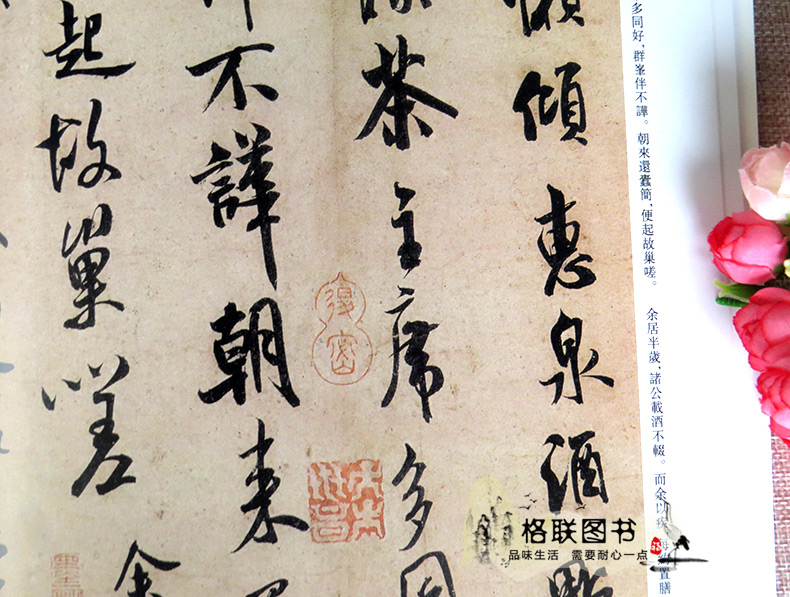 多同好，群峯伴不譁。朝來還蠹簡，便起故巢嗟。 余居半歲，諸公載酒不輟。而余以 置膳
傾惠泉酒
茶主席多同
不譁朝來
起故巢嗟 余
格联图书
品味生活 需要耐心一点